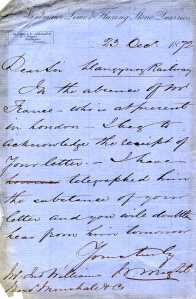 23 Dec 1872
Dear Sir Llangynog Railway
In the absence of Mr
France who is at present
in London – I beg to
acknowledge the receipt of
Your letter – I have
telegraphed him
the substance of your
letter and you will doubtless
hear from him tomorrow
Yours truly
Wright
Mr Jno Williams
Marshall & Co